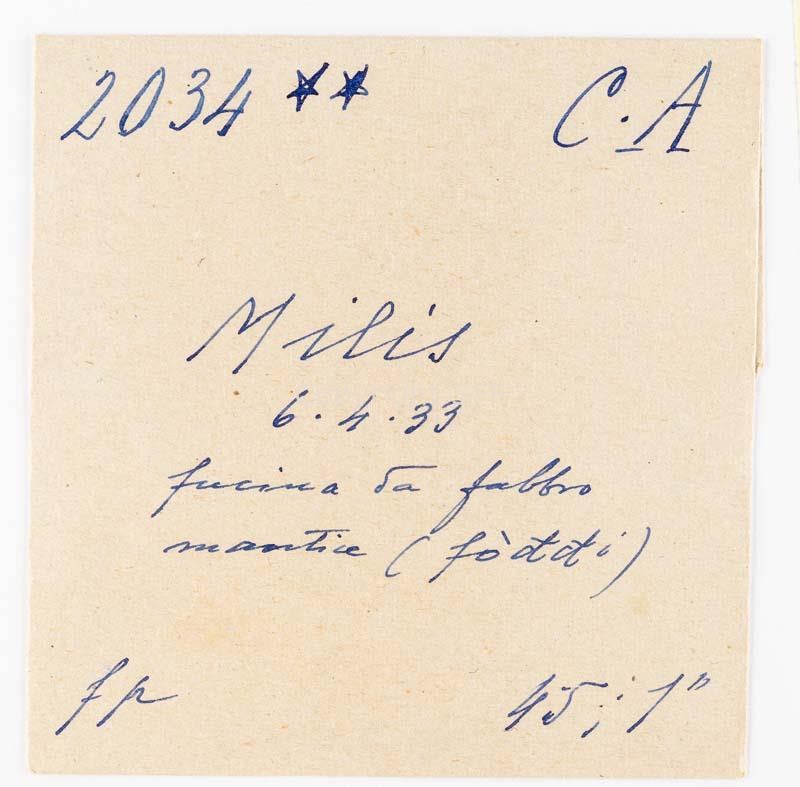 2034 ★★ C.A
Milis
6.4.33
fucina da fabbro
mantice (fòđđi)
fp 45; 1"